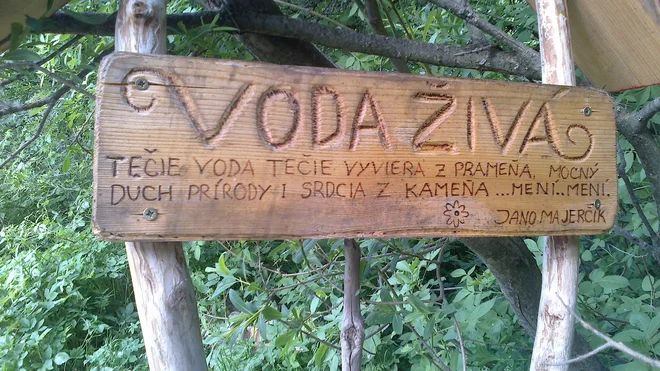 VODA ŽIVÁ
TEČIE VODA TEČIE VYVIERA Z PRAMEŇA, MOCNÝ
DUCH PRÍRODY I SRDCIA Z KAMEŇA ...MENÍ..MENÍ.
JANO.MAJERČÍK